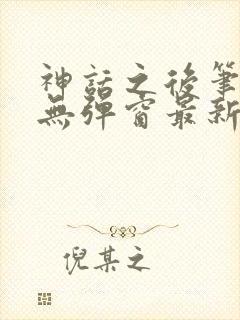 神話之後筆
無彈窗最新
倪某之